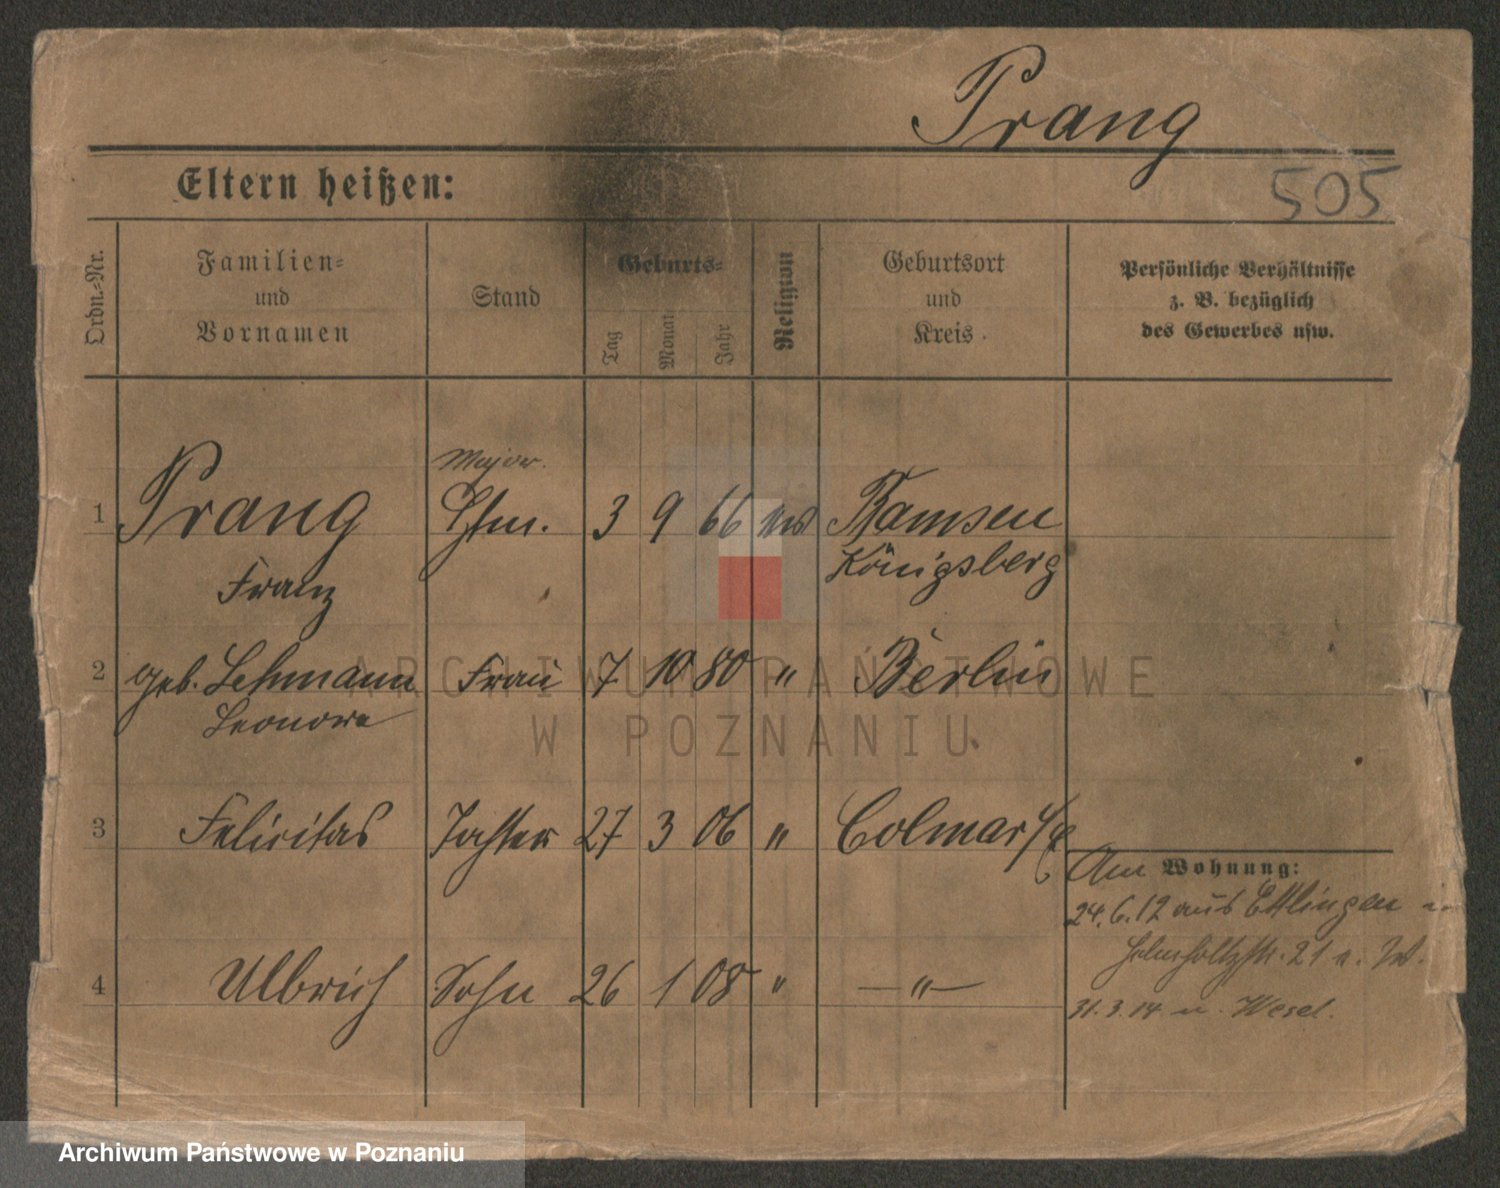 Prang
505
Eltern heißen:
Ordn.-Nr.
Familien-
und
Vornamen
Stand
Geburts-
Tag
Monat
Jahr
Religion
Geburtsort
und
Kreis.
Persönliche Verhältnisse
z. B. bezüglich
des Gewerbes usw.
Major.
1 Prang Hptm. 3 9 66 Ramsen
Franz Königsberg
2 geb. Lehmann Frau 7 10 80 " Berlin
Leonore
3 Felicitas Tochter 27 3 06 " Colmar i/E
Wohnung:
Am
24.6.12 aus Ettlingen
Helmholtzstr. 21 a. W.
4 Ulbrich Sohn 26 1 08 " —"—
31.3.14 n. Wesel.
ARCHIWUM PAŃSTWOWE
W POZNANIU
Archiwum Państwowe w Poznaniu